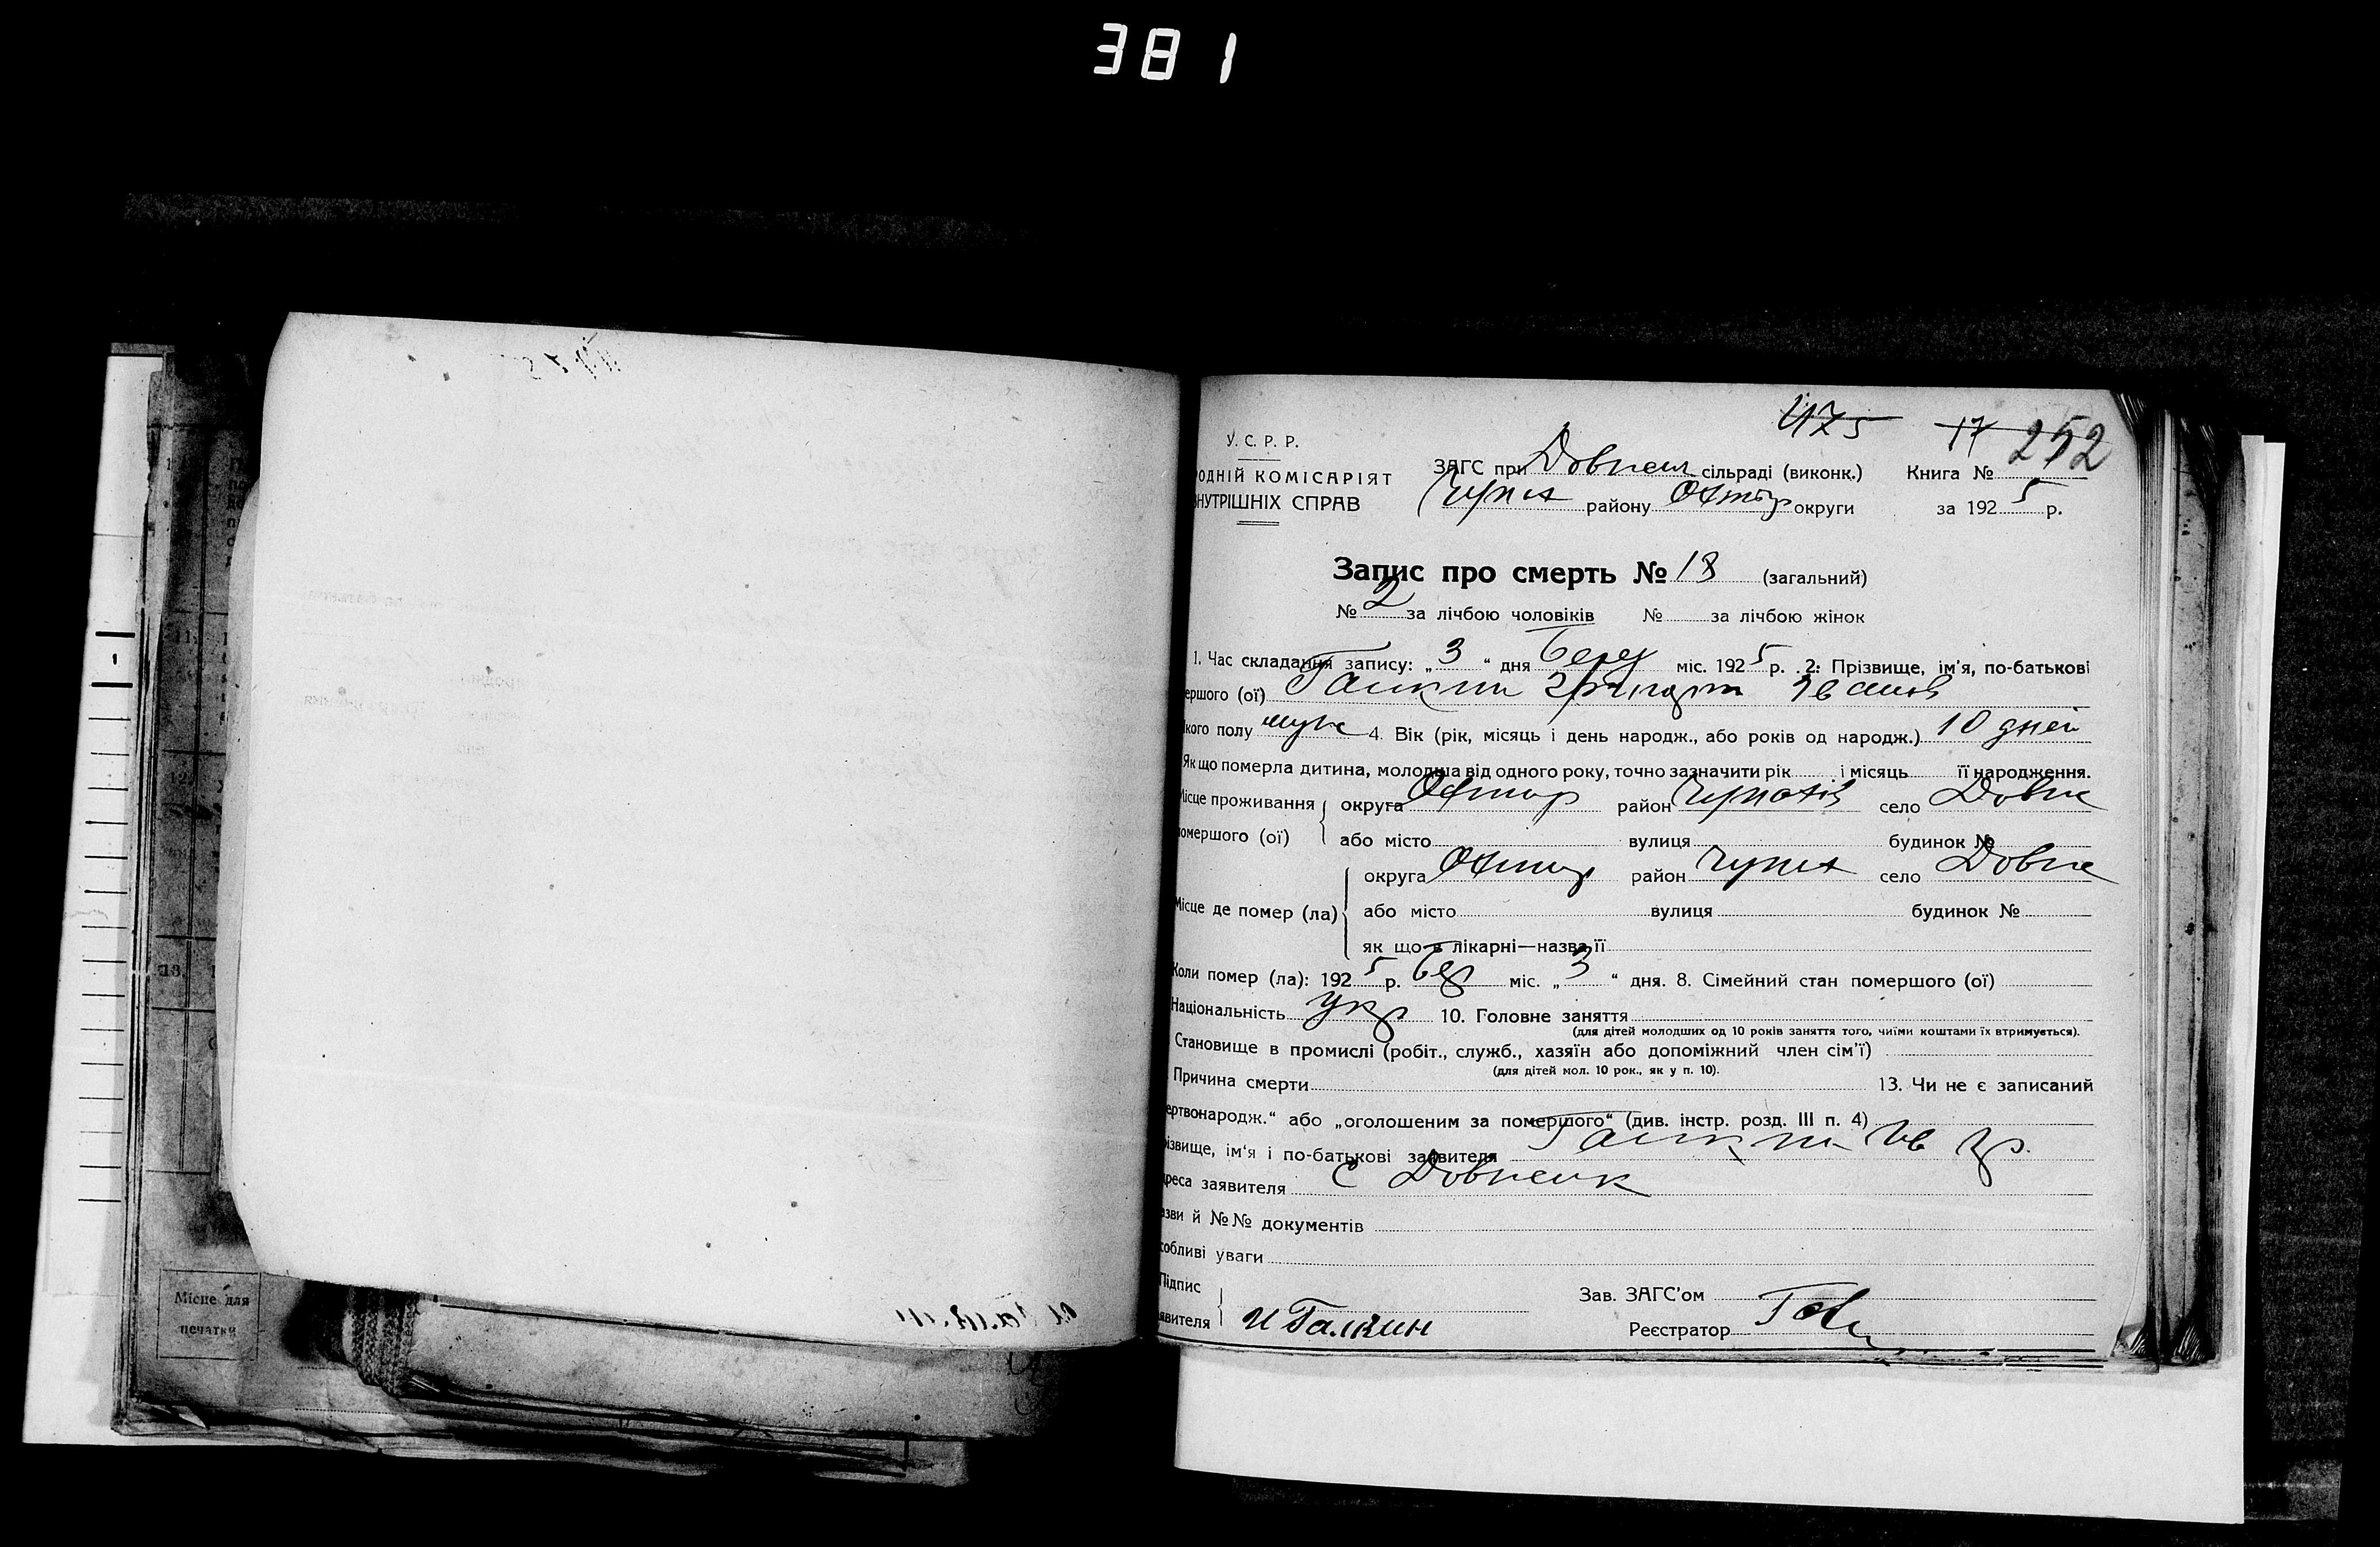 381
475 17 252
У. С. Р. Р.
ОДНІЙ КОМІСАРІЯТ
НУТРІШНІХ СПРАВ
ЗАГС при Довжен сільраді (виконк.) Книга №
Чупах району Охтир округи за 1925 р.
Запис про смерть № 18 (загальний)
№ 2 за лічбою чоловіків № за лічбою жінок
1. Час складання запису: „3“ дня Берез міс. 1925 р. 2. Прізвище, ім'я, по-батькові
ершого (ої) Галкин
кого полу муж 4. Вік (рік, місяць і день народж., або років од народж.) 10 дней
Як що померла дитина, молодша від одного року, точно зазначити рік і місяць її народження.
Місце проживання округа Охтир район Чупахів село Довже
помершого (ої) або місто вулиця будинок №
округа Охтир район Чупах село Довже
Місце де помер (ла) або місто вулиця будинок №
як що в лікарні—назва її
Коли помер (ла): 1925 р. Бер міс. „3“ дня. 8. Сімейний стан помершого (ої)
Національність укр 10. Головне заняття
(для дітей молодших од 10 років заняття того, чиїми коштами їх втримується).
Становище в промислі (робіт., служб., хазяїн або допоміжний член сім'ї)
(для дітей мол. 10 рок., як у п. 10).
Причина смерти 13. Чи не є записаний
ертвонародж.“ або „оголошеним за помершого“ (див. інстр. розд. III п. 4)
різвище, ім'я і по-батькові заявителя Галкин Ив Гр.
дреса заявителя С Довженк
зви й №№ документів
собливі уваги
Підпис
явителя И Галкин
Зав. ЗАГС'ом
Реєстратор
Місце для
печатки